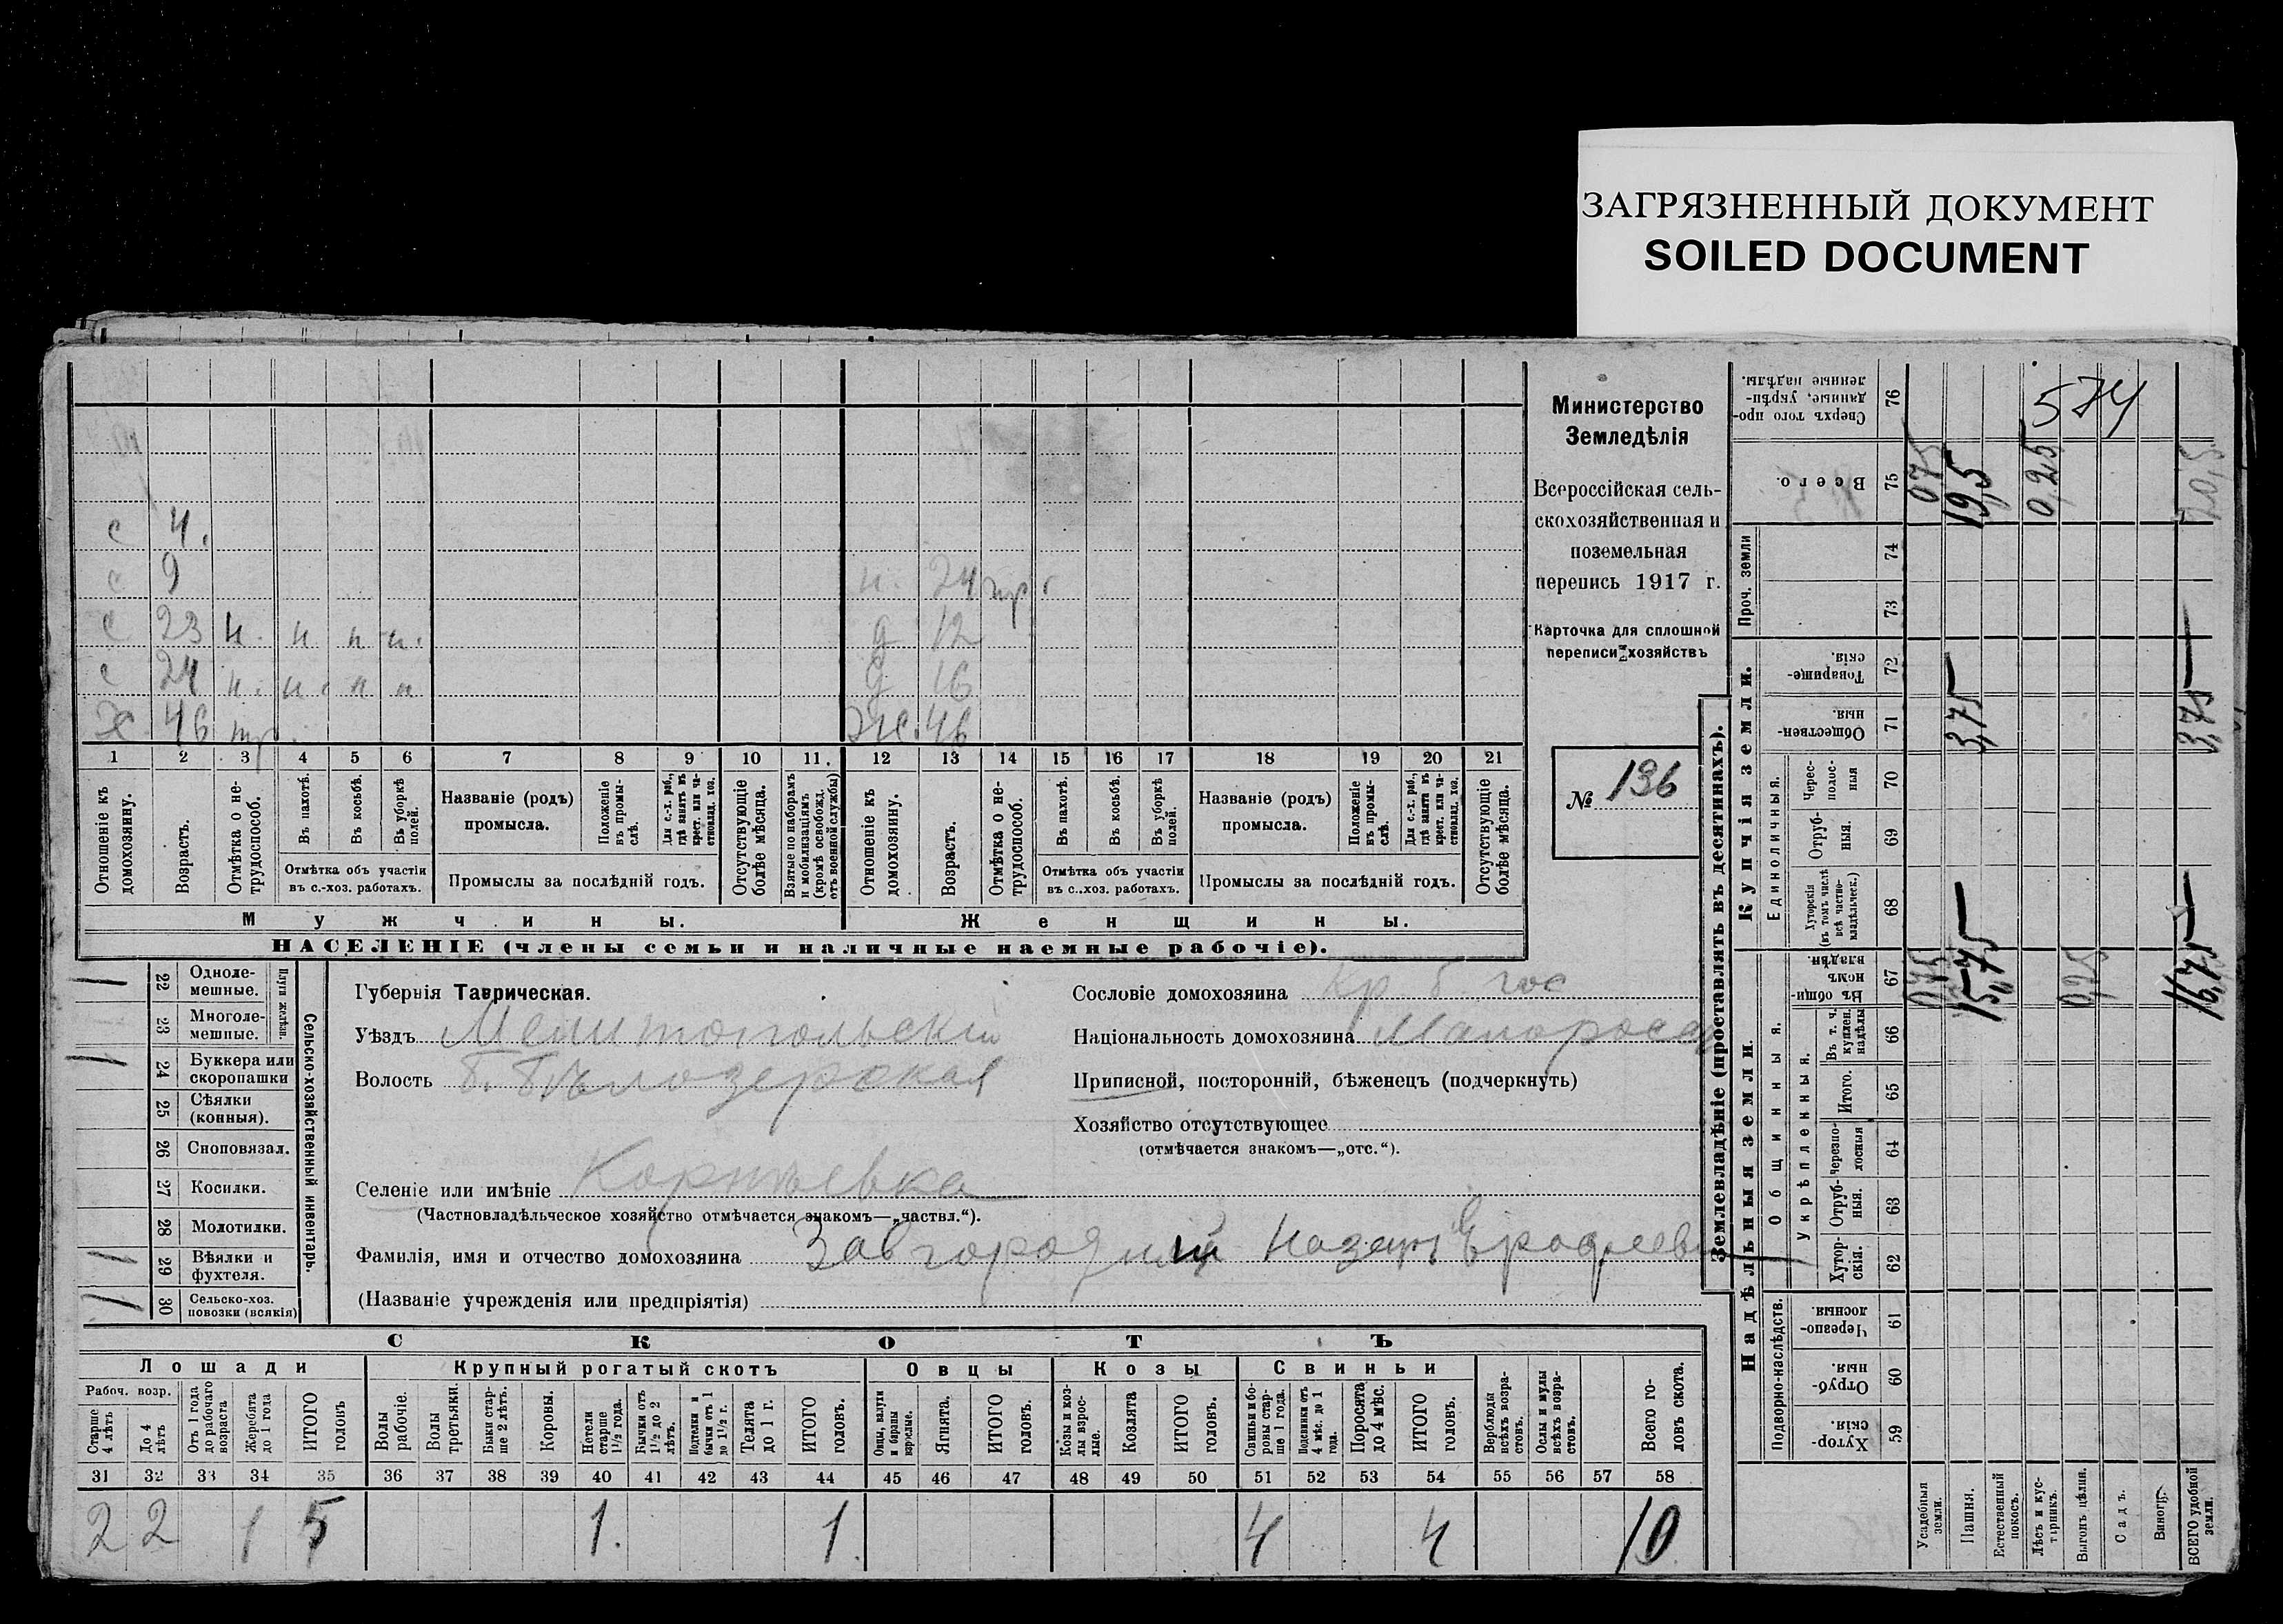 ЗАГРЯЗНЕННЫЙ ДОКУМЕНТ
SOILED DOCUMENT
Министерство
Земледѣлія
Всероссійская сель-
скохозяйственная и
поземельная
перепись 1917 г.
Карточка для сплошной
переписи хозяйствъ
№ 136
с 4.
с 9
н. 24 тр
с 23 н. н н н. д 12
с 24 н. н. н н д 16
Х 46 тр. Ж. 46
1 2 3 4 5 6 7 8 9 10 11. 12 13 14 15 16 17 18 19 20 21
Отношеніе къ домохозяину.
Возрастъ.
Отмѣтка о не-трудоспособ.
Въ пахотѣ.
Въ косьбѣ.
Въ уборкѣ полей.
Отмѣтка объ участіи
въ с.-хоз. работахъ.
Названіе (родъ)
промысла.
Положеніе въ промы-слѣ.
Для с.-х. раб., гдѣ занятъ въ крест. или ча-стновлад. хоз.
Промыслы за послѣдній годъ.
Отсутствующіе болѣе мѣсяца.
Взятые по наборамъ и мобилизаціямъ (кромѣ освобожд. отъ военной службы)
Отношеніе къ домохозяину.
Возрастъ.
Отмѣтка о не-трудоспособ.
Въ пахотѣ.
Въ косьбѣ.
Въ уборкѣ полей.
Отмѣтка объ участіи
въ с.-хоз. работахъ.
Названіе (родъ)
промысла.
Положеніе въ промы-слѣ.
Для с.-х. раб., гдѣ занята въ крест. или ча-стновлад. хоз.
Промыслы за послѣдній годъ.
Отсутствующіе болѣе мѣсяца.
Мужчины. Женщины.
НАСЕЛЕНІЕ (члены семьи и наличные наемные рабочіе).
Сельско-хозяйственный инвентарь.
Плуги желѣзн.
1 22 Одноле-мешные.
23 Многоле-мешные.
1 24 Буккера или скоропашки
25 Сѣялки (конныя).
26 Сноповязал.
27 Косилки.
28 Молотилки.
1 29 Вѣялки и фухтеля.
1 30 Сельско-хоз. повозки (всякія)
Губернія Таврическая.
Уѣздъ Мелитопольскій
Волость Б. Бѣлозерская
Селеніе или имѣніе Корнѣевка
(Частновладѣльческое хозяйство отмѣчается знакомъ—„частвл.“).
Фамилія, имя и отчество домохозяина Завгородній Назаръ Ерофѣевъ
(Названіе учрежденія или предпріятія)
Сословіе домохозяина Кр. б. гос
Національность домохозяина Малороссъ
Приписной, посторонній, бѣженецъ (подчеркнуть)
Хозяйство отсутствующее
(отмѣчается знакомъ—„отс.“).
СКОТЪ
Лошади Крупный рогатый скотъ Овцы Козы Свиньи
Рабоч. возр.
Старше 4 лѣтъ
До 4 лѣтъ
Отъ 1 года до рабочаго возраста
Жеребята до 1 года
ИТОГО головъ
Волы рабочіе.
Волы третьяки.
Быки стар-ше 2 лѣтъ.
Коровы.
Нетели старше 1½ года.
Бычки отъ 1½ до 2 лѣтъ.
Подтелки и бычки отъ 1 до 1½ г.
Телята до 1 г.
ИТОГО головъ.
Овцы, валухи и бараны взрослые.
Ягнята.
ИТОГО головъ.
Козы и коз-лы взрос-лые.
Козлята
ИТОГО головъ.
Свиньи и бо-ровы стар-ше 1 года.
Подсвинки отъ 4 мѣс. до 1 года.
Поросята до 4 мѣс.
ИТОГО головъ.
Верблюды всѣхъ возра-стовъ.
Ослы и мулы всѣхъ возра-стовъ.
Всего го-ловъ скота.
31 32 33 34 35 36 37 38 39 40 41 42 43 44 45 46 47 48 49 50 51 52 53 54 55 56 57 58
2 2 1 5 1. 1. 4 4 10
Землевладѣніе (проставлять въ десятинахъ).
Надѣльныя земли. Купчія земли. Проч. земли
Подворно-наслѣдств. Общинныя. Единоличныя.
Укрѣпленныя.
Хутор-скія. 59
Отруб-ныя. 60
Черезпо-лосныя. 61
Хутор-скія. 62
Отруб-ныя. 63
Черезпо-лосныя 64
Итого. 65
Въ т. ч. куплен. надѣлы 66
Въ общи-номъ владѣн. 67
Хуторскія (въ томъ числѣ всѣ частно-владѣльческ.) 68
Отруб-ныя. 69
Черес-полос-ныя 70
Обществен-ныя. 71
Товарище-скія. 72
73
74
Всего. 75
Сверхъ того про-данные, укрѣп-ленные надѣлы. 76
574
Усадебныя земли. 0,75 0,75
Пашня. 15,75 3,75 19,5
Естественный покосъ.
Лѣсъ и кус-тарникъ. 0,25
Выгонъ цѣлин. 0,25
Садъ.
Виногр.
ВСЕГО удобной земли. 16,75 3,75 20,5